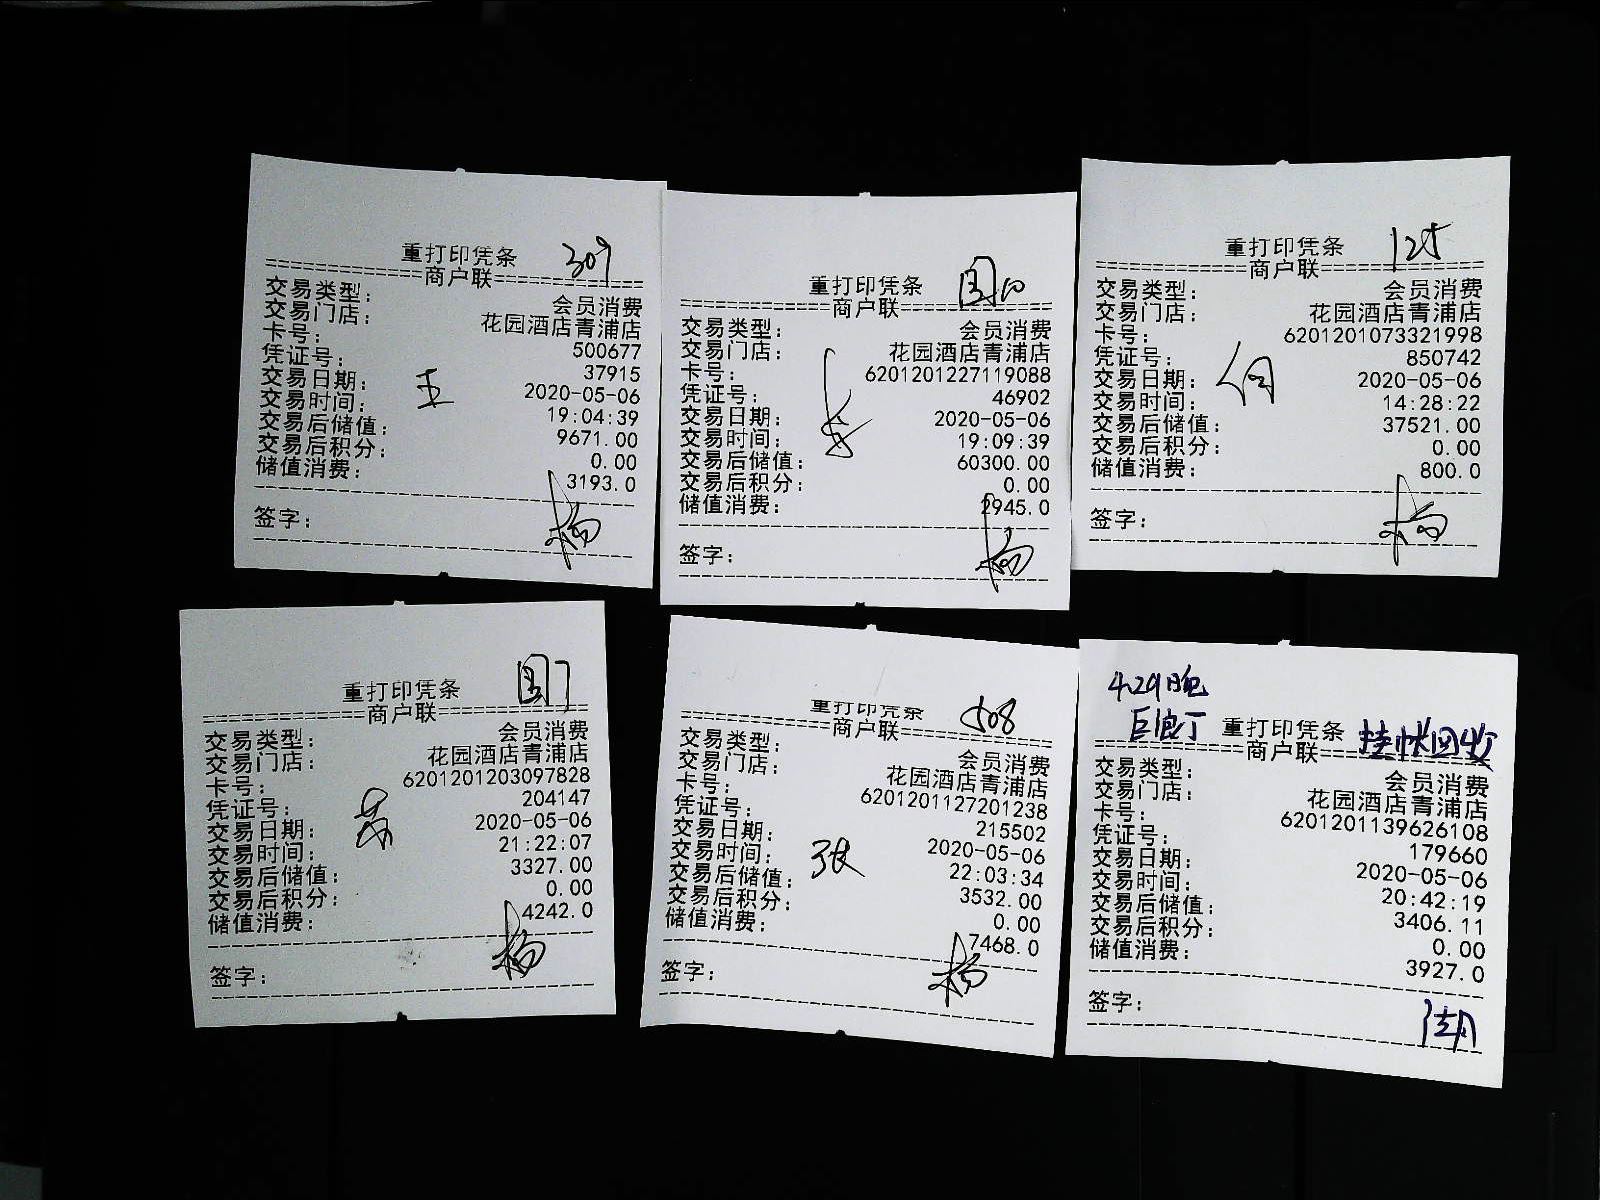 重打印凭条 309
商户联
交易类型: 会员消费
交易门店: 花园酒店青浦店
卡号: 500677
凭证号: 37915
交易日期: 2020-05-06
交易时间: 19:04:39
交易后储值: 9671.00
交易后积分: 0.00
储值消费: 3193.0
王
签字: 杨
重打印凭条
商户联
交易类型: 会员消费
交易门店: 花园酒店青浦店
卡号: 6201201227119088
凭证号: 46902
交易日期: 2020-05-06
交易时间: 19:09:39
交易后储值: 60300.00
交易后积分: 0.00
储值消费: 2945.0
签字: 杨
重打印凭条 125
商户联
交易类型: 会员消费
交易门店: 花园酒店青浦店
卡号: 6201201073321998
凭证号: 850742
交易日期: 2020-05-06
交易时间: 14:28:22
交易后储值: 37521.00
交易后积分: 0.00
储值消费: 800.0
何
签字: 杨
重打印凭条
商户联
交易类型: 会员消费
交易门店: 花园酒店青浦店
卡号: 6201201203097828
凭证号: 204147
交易日期: 2020-05-06
交易时间: 21:22:07
交易后储值: 3327.00
交易后积分: 0.00
储值消费: 4242.0
签字: 杨
重打印凭条 508
商户联
交易类型: 会员消费
交易门店: 花园酒店青浦店
卡号: 6201201127201238
凭证号: 215502
交易日期: 2020-05-06
交易时间: 22:03:34
交易后储值: 3532.00
交易后积分: 0.00
储值消费: 7468.0
张
签字: 杨
重打印凭条 挂帐回收
商户联
交易类型: 会员消费
交易门店: 花园酒店青浦店
卡号: 6201201139626108
凭证号: 179660
交易日期: 2020-05-06
交易时间: 20:42:19
交易后储值: 3406.11
交易后积分: 0.00
储值消费: 3927.0
签字: